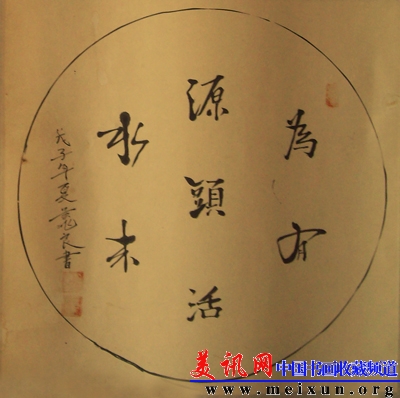 為有
源頭活
水来
戊子年夏 良書
美讯网 中国书画收藏频道
www.meixun.org